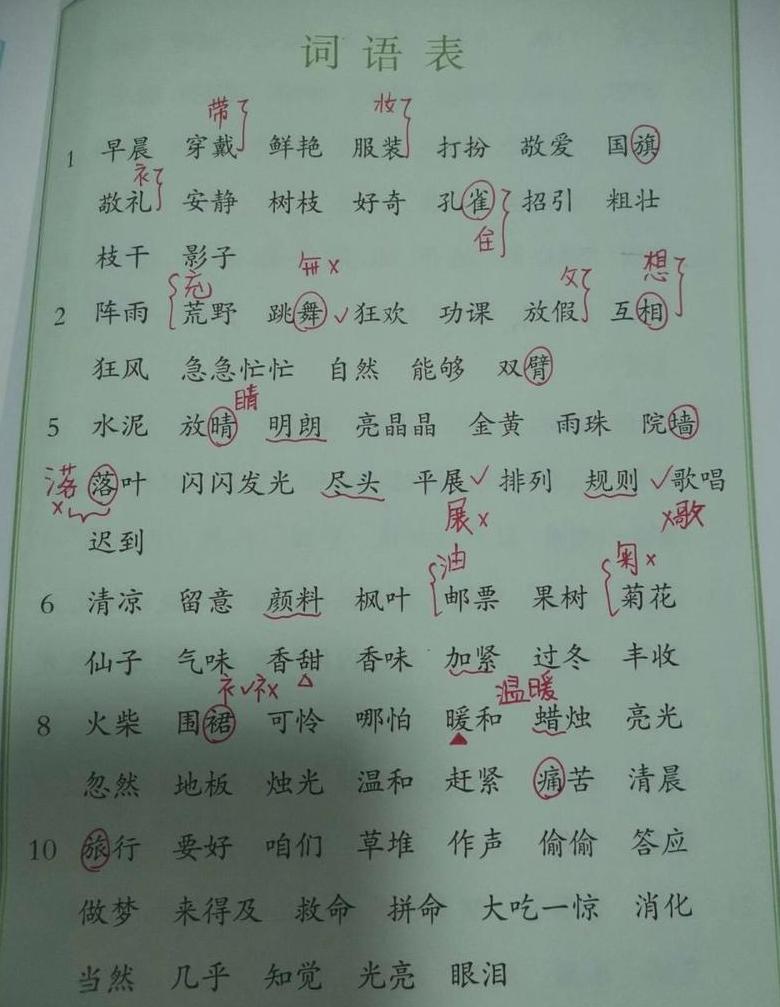 词语表
带 妆
1 早晨 穿戴 鲜艳 服装 打扮 敬爱 国旗
衤
敬礼 安静 树枝 好奇 孔雀 招引 粗壮
住
枝干 影子
充 毎× 攵 想
2 阵雨 荒野 跳舞 ✓狂欢 功课 放假 互相
狂风 急急忙忙 自然 能够 双臂
睛
5 水泥 放晴 明朗 亮晶晶 金黄 雨珠 院墙
落 落叶 闪闪发光 尽头 平展✓ 排列 规则 ✓歌唱
× 展× ×歌
迟到
油 ×
6 清凉 留意 颜料 枫叶 邮票 果树 菊花
仙子 气味 香甜 香味 加紧 过冬 丰收
衤✓礻× 温暖
8 火柴 围裙 可怜 哪怕 暖和 蜡烛 亮光
忽然 地板 烛光 温和 赶紧 痛苦 清晨
10 旅行 要好 咱们 草堆 作声 偷偷 答应
做梦 来得及 救命 拼命 大吃一惊 消化
当然 几乎 知觉 光亮 眼泪